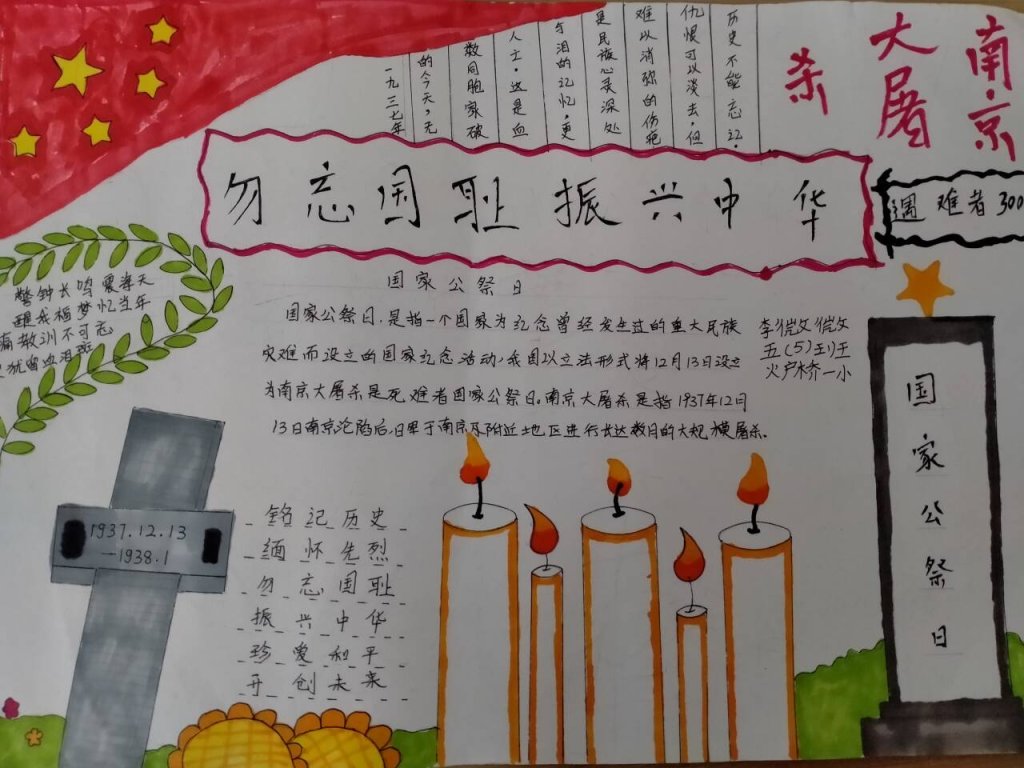 南京
大屠
杀
历史不能忘记.
仇恨可以淡去,但
难以消弥的伤疤
是民族心灵深处
与泪的记忆,更
人士.这是血
数同胞家破
的今天,无
一九三七年
勿忘国耻 振兴中华
遇难者300
国家公祭日
警钟长鸣震海天
醒我梅梦忆当年
痛教训不可忘
犹留血泪斑
国家公祭日,是指一个国家为纪念曾经发生过的重大民族
灾难而设立的国家纪念活动,我国以立法形式将12月13日设立
为南京大屠杀是死难者国家公祭日。南京大屠杀是指1937年12月
13日南京沦陷后,日军于南京及附近地区进行长达数月的大规模屠杀。
五(5)班
一小
1937.12.13
—1938.1
铭记历史
缅怀先烈
勿忘国耻
振兴中华
珍爱和平
开创未来
国家公祭日